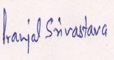 Pranjal Srivastava